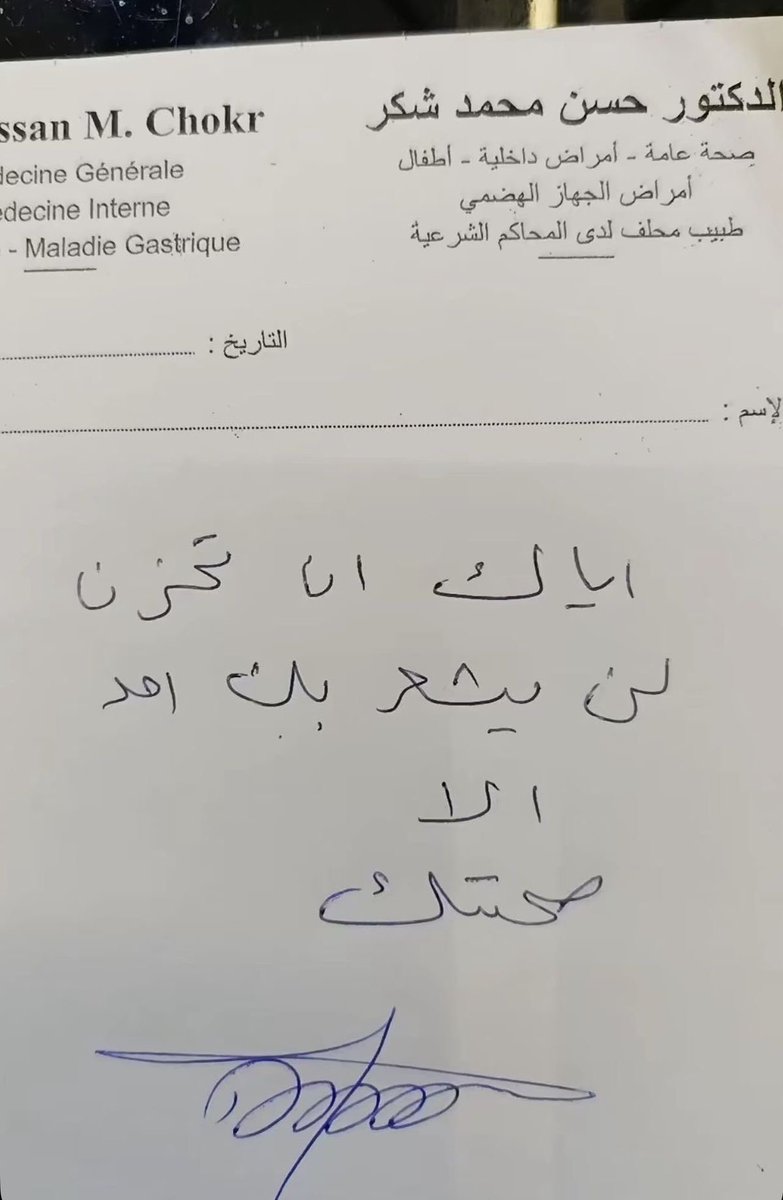 الدكتور حسن محمد شكر
صحة عامة - أمراض داخلية - أطفال
أمراض الجهاز الهضمي
طبيب محلف لدى المحاكم الشرعية
ssan M. Chokr
decine Générale
edecine Interne
- Maladie Gastrique
التاريخ :
لإسم :
اياك ان تحزن
لن يشعر بك احد
الا
صحتك